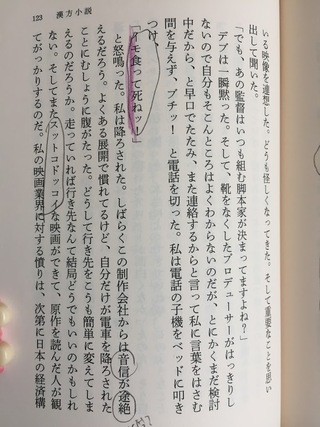 123 漢方小説
いる映像を連想した。どうも怪しくなってきた。そして重要なことを思い
出して聞いた。
「でも、あの監督はいつも組む脚本家が決まってますよね？」
デブは一瞬黙った。そして、靴をなくしたプロデューサーがはっきりし
ないので自分もそこんところはよくわからないのだが、とにかくまだ検討
中だから、と早口でたたみ、また連絡するからと言って私に言葉をはさむ
間を与えず、ブチッ！　と電話を切った。私は電話の子機をベッドに叩き
つけ、
「イモ食って死ねッ！」
と怒鳴った。私は降ろされた。しばらくこの制作会社からは音信が途絶
えるだろう。よくある展開で慣れてるけど、自分だけが電車を降ろされた
ことにむしょうに腹がたった。どうして行き先をこうも簡単に変えてしま
えるのだろうか。走っていれば行き先なんて結局どうでもいいのかもしれ
ない。そしてまたスットコドッコイな映画ができて、原作を読んだ人が観
てがっかりするのだ。私の映画業界に対する憤りは、次第に日本の経済構